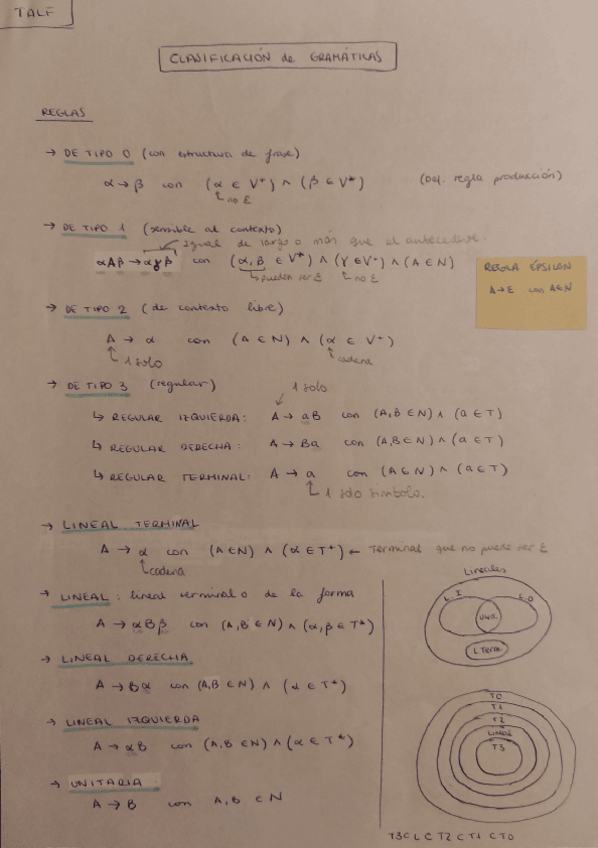 TALF
CLASIFICACIÓN de GRAMÁTICAS
REGLAS
→ DE TIPO 0 (con estructura de frase)
α → β con (α ∈ V⁺) ∧ (β ∈ V*) (Def. regla producción)
↳ no ε
→ DE TIPO 1 (sensible al contexto)
igual de largo o más que el antecedente.
αAβ → αγβ con (α, β ∈ V*) ∧ (γ ∈ V⁺) ∧ (A ∈ N)
↳ pueden ser ε ↳ no ε
REGLA ÉPSILON
A → ε con A ∈ N
→ DE TIPO 2 (de contexto libre)
A → α con (A ∈ N) ∧ (α ∈ V⁺)
1 solo cadena
→ DE TIPO 3 (regular)
1 solo
↳ REGULAR IZQUIERDA: A → aB con (A, B ∈ N) ∧ (a ∈ T)
↳ REGULAR DERECHA: A → Ba con (A, B ∈ N) ∧ (a ∈ T)
↳ REGULAR TERMINAL: A → a con (A ∈ N) ∧ (a ∈ T)
↳ 1 solo símbolo.
→ LINEAL TERMINAL
A → α con (A ∈ N) ∧ (α ∈ T⁺) ← Terminal que no puede ser ε
↳ cadena
→ LINEAL: lineal terminal o de la forma
A → αBβ con (A, B ∈ N) ∧ (α, β ∈ T*)
→ LINEAL DERECHA
A → Bα con (A, B ∈ N) ∧ (α ∈ T*)
→ LINEAL IZQUIERDA
A → αB con (A, B ∈ N) ∧ (α ∈ T*)
→ UNITARIA:
A → B con A, B ∈ N
Lineales
L.I L.D
L. Term
T0
T1
T2
LINEAL
T3
T3 ⊂ L ⊂ T2 ⊂ T1 ⊂ T0